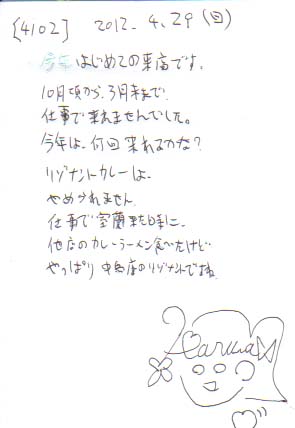 [4102] 2012.4.29(日)
今年はじめての来店です。
10月頃から、3月末まで
仕事で来れませんでした。
今年は、何回来れるかな?
リゾナントカレーは、
やめられません。
仕事で室蘭来た時に、
他店のカレーラーメン食べたけど
やっぱり 中島店のリゾナントですね
Haruna